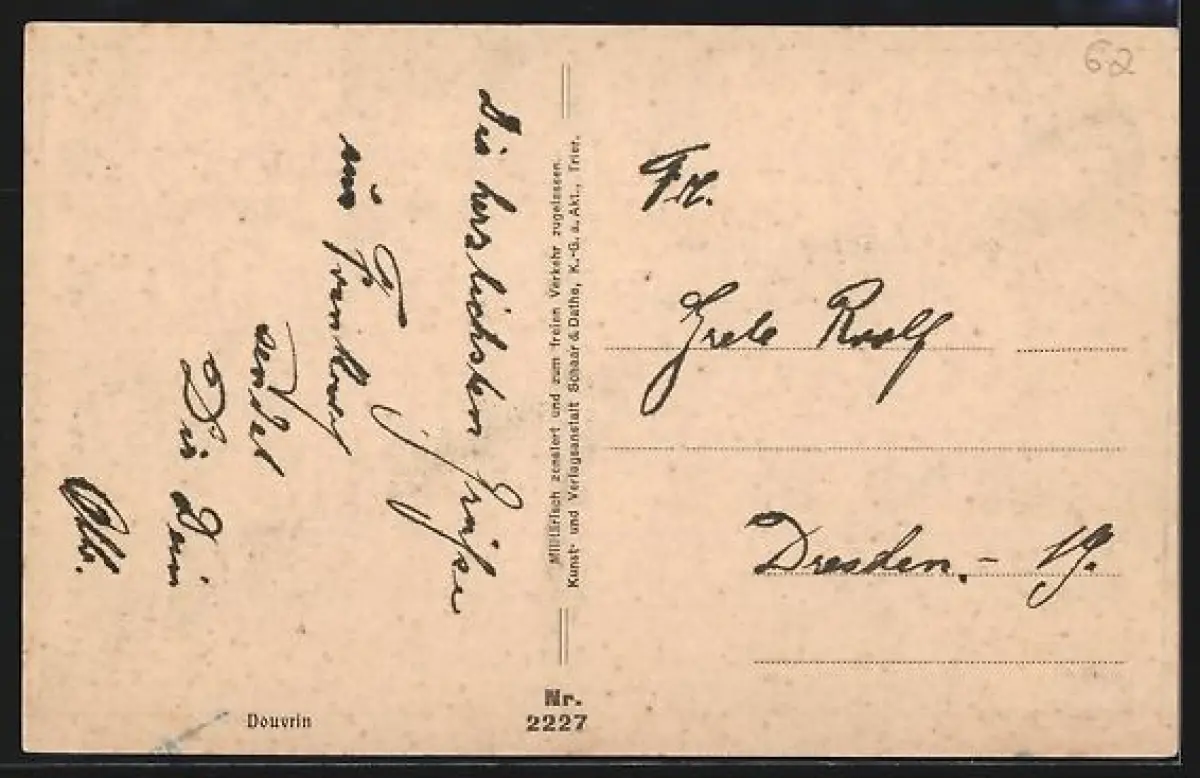 62
Die herzlichsten Grüße
aus
sendet
Dir Dein
Militärisch zensiert und zum freien Verkehr zugelassen.
Kunst- und Verlagsanstalt Schaar & Dathe, K.-G. a. Akt., Trier.
Frl.
Grete
Dresden.- 19.
Douvrin
Nr.
2227